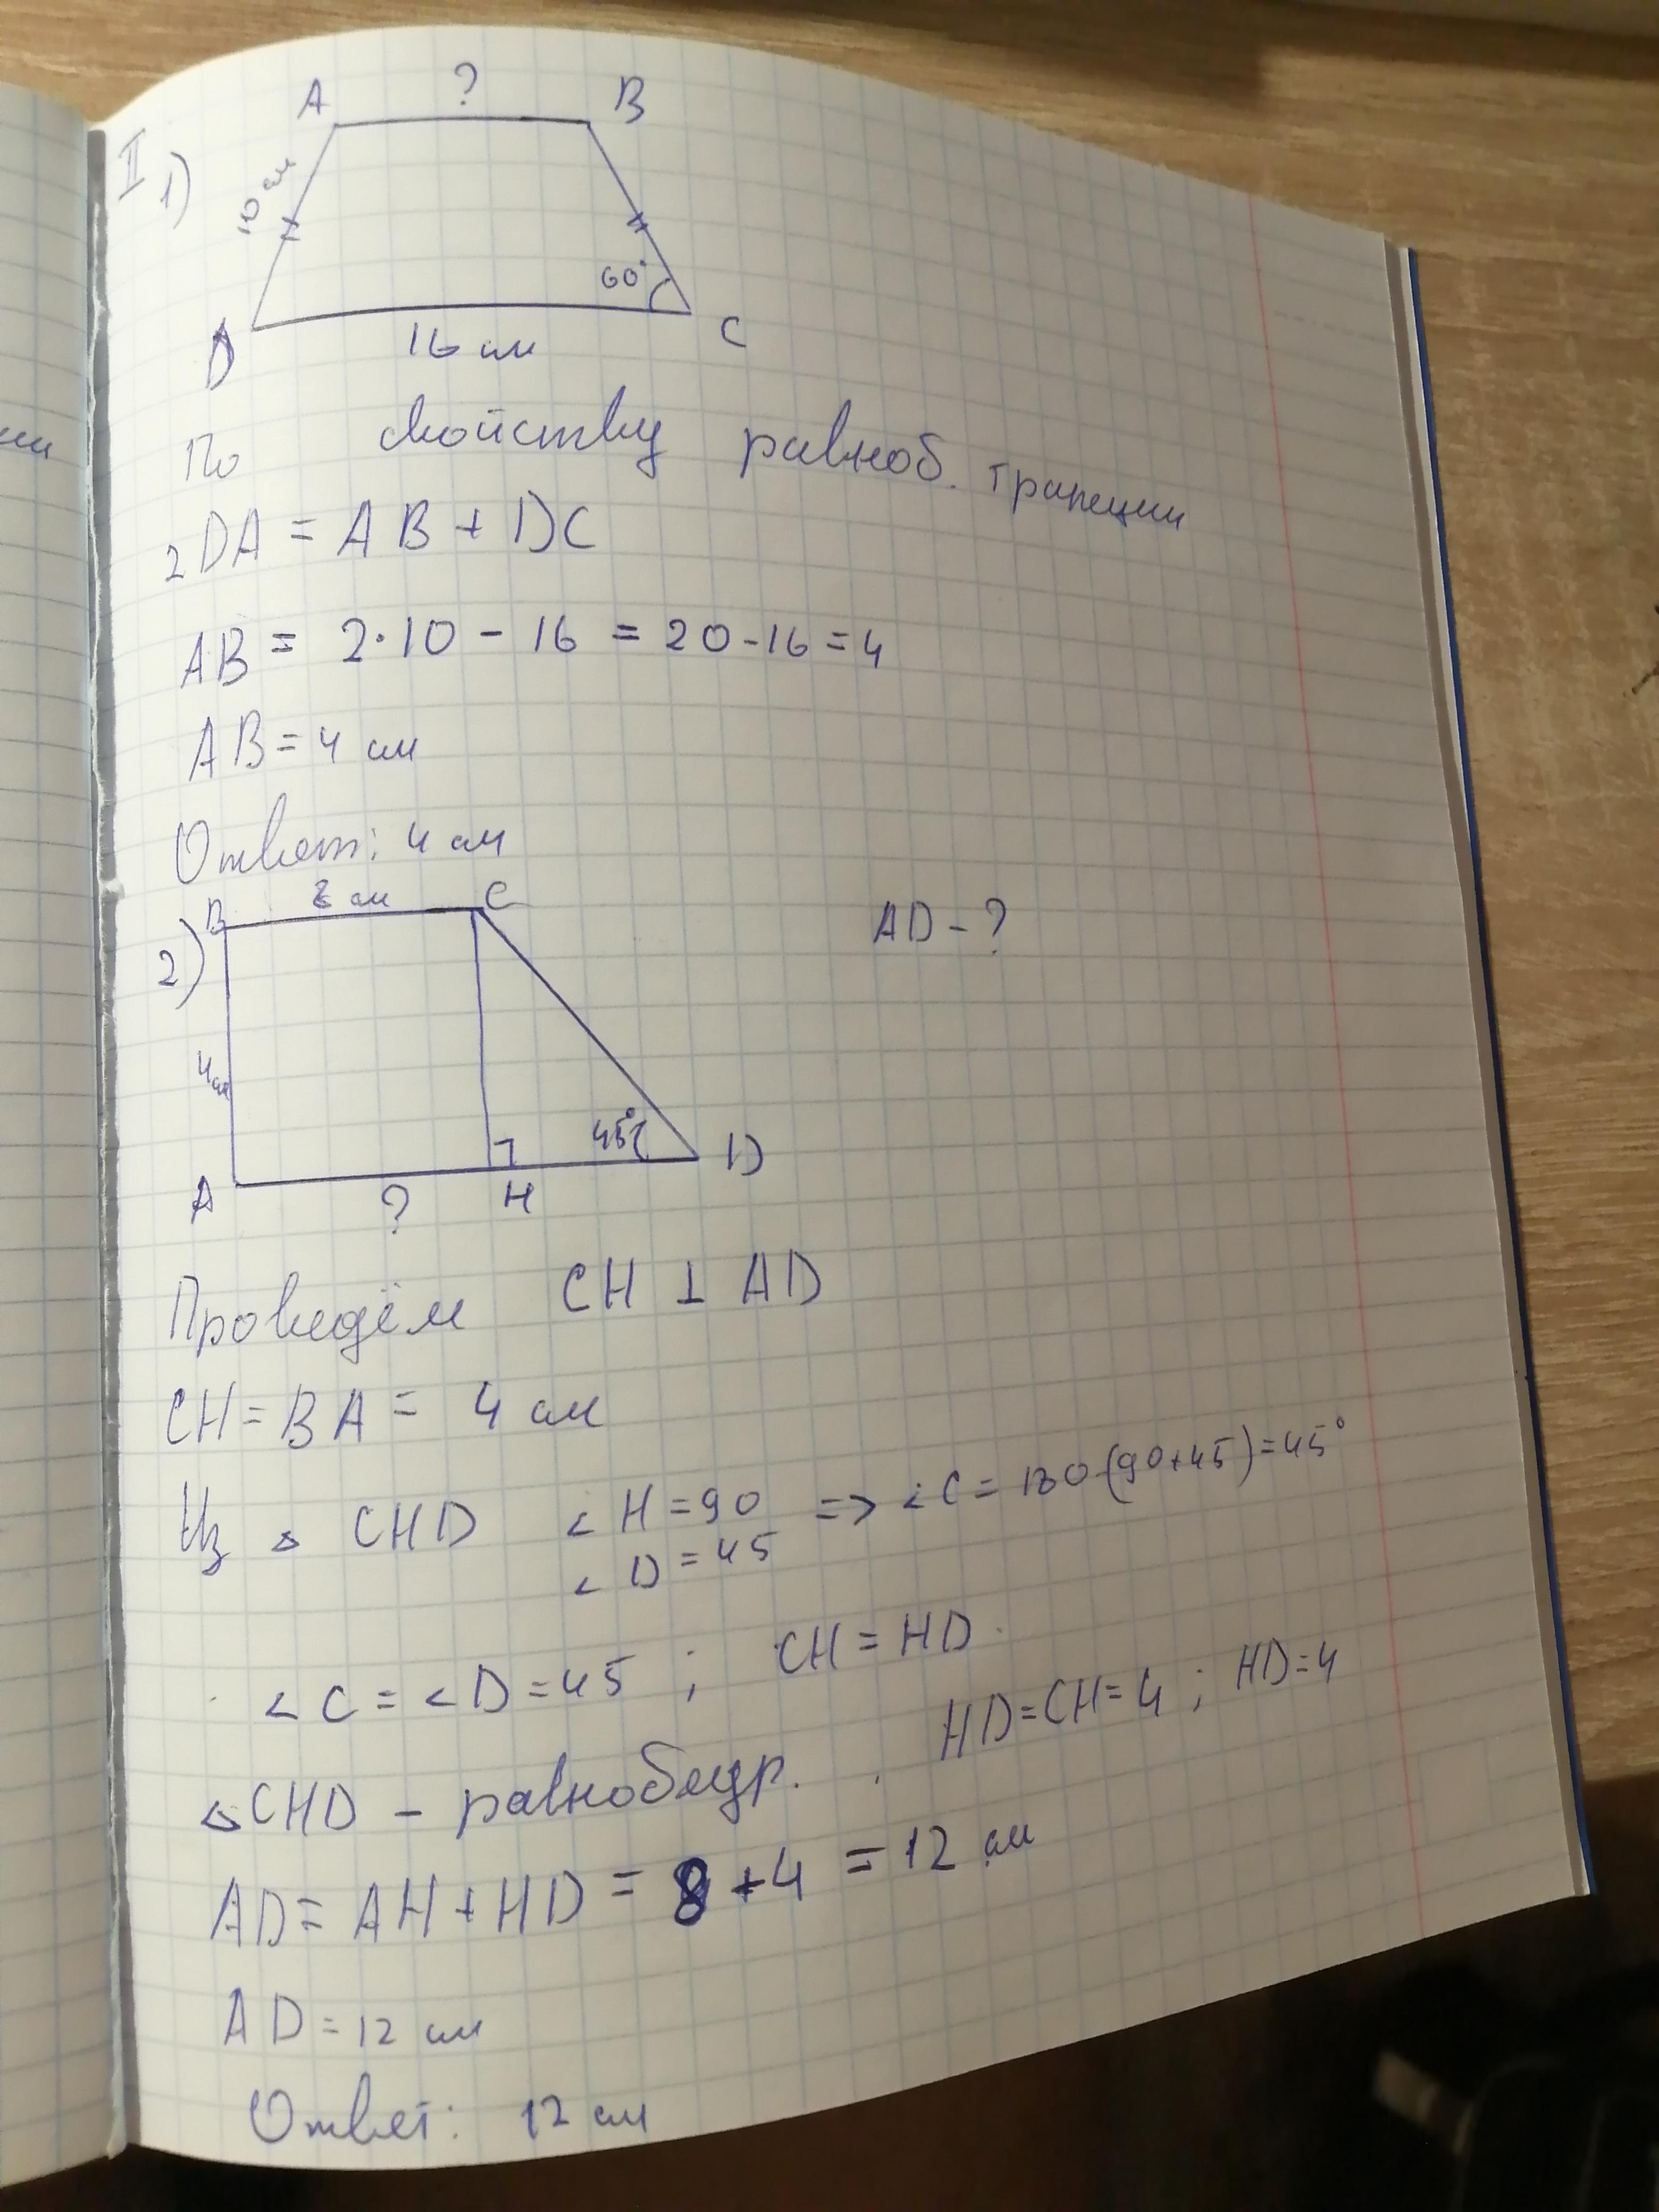 II
1)
A ? B
10 см
60°
D 16 см C
По свойству равноб. трапеции
2DA = AB + DC
AB = 2·10 - 16 = 20-16=4
AB=4 см
Ответ: 4 см
2)
B см C
AD-?
4см
45°
A ? H D
Проведём CH ⊥ AD
CH=BA= 4 см
Из △ CHD ∠ H=90 => ∠C = 180-(90+45)=45°
∠ D=45
∠ C = ∠D=45 ; CH=HD
△CHD - равнобедр. HD=CH=4 ; HD=4
AD= AH+HD = 8+4 =12 см
AD=12 см
Ответ: 12 см